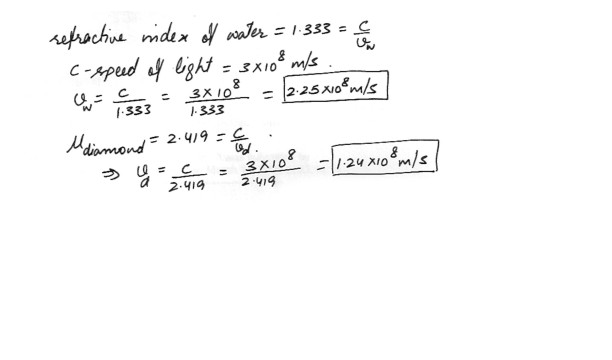 refractive index of water = 1.333 = C/v_w
C - speed of light = 3×10⁸ m/s.
v_w = C/1.333 = 3×10⁸/1.333 = 2.25×10⁸ m/s
μ_diamond = 2.419 = C/v_d.
⇒ v_d = C/2.419 = 3×10⁸/2.419 = 1.24×10⁸ m/s